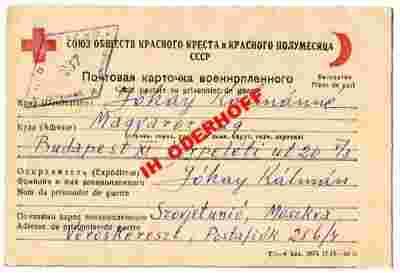 СОЮЗ ОБЩЕСТВ КРАСНОГО КРЕСТА и КРАСНОГО ПОЛУМЕСЯЦА
СССР
Почтовая карточка военнопленного
Carte postale du prisonnier de guerre
Бесплатно
Franc de port
Кому (Destinataire) Jóhay Kálmánné
Куда (Adresse) Magyarország
Budapest XI. út 20
IH ODERHOFF
Отправитель (Expéditeur) Jóhay Kálmán
Фамилия и имя военнопленного
Nom du prisonnier de guerre
Почтовый адрес военнопленного Szovjetunió, Moszkva
Adresse du prisonnier de guerre
Vöröskereszt, Postafiók 286/